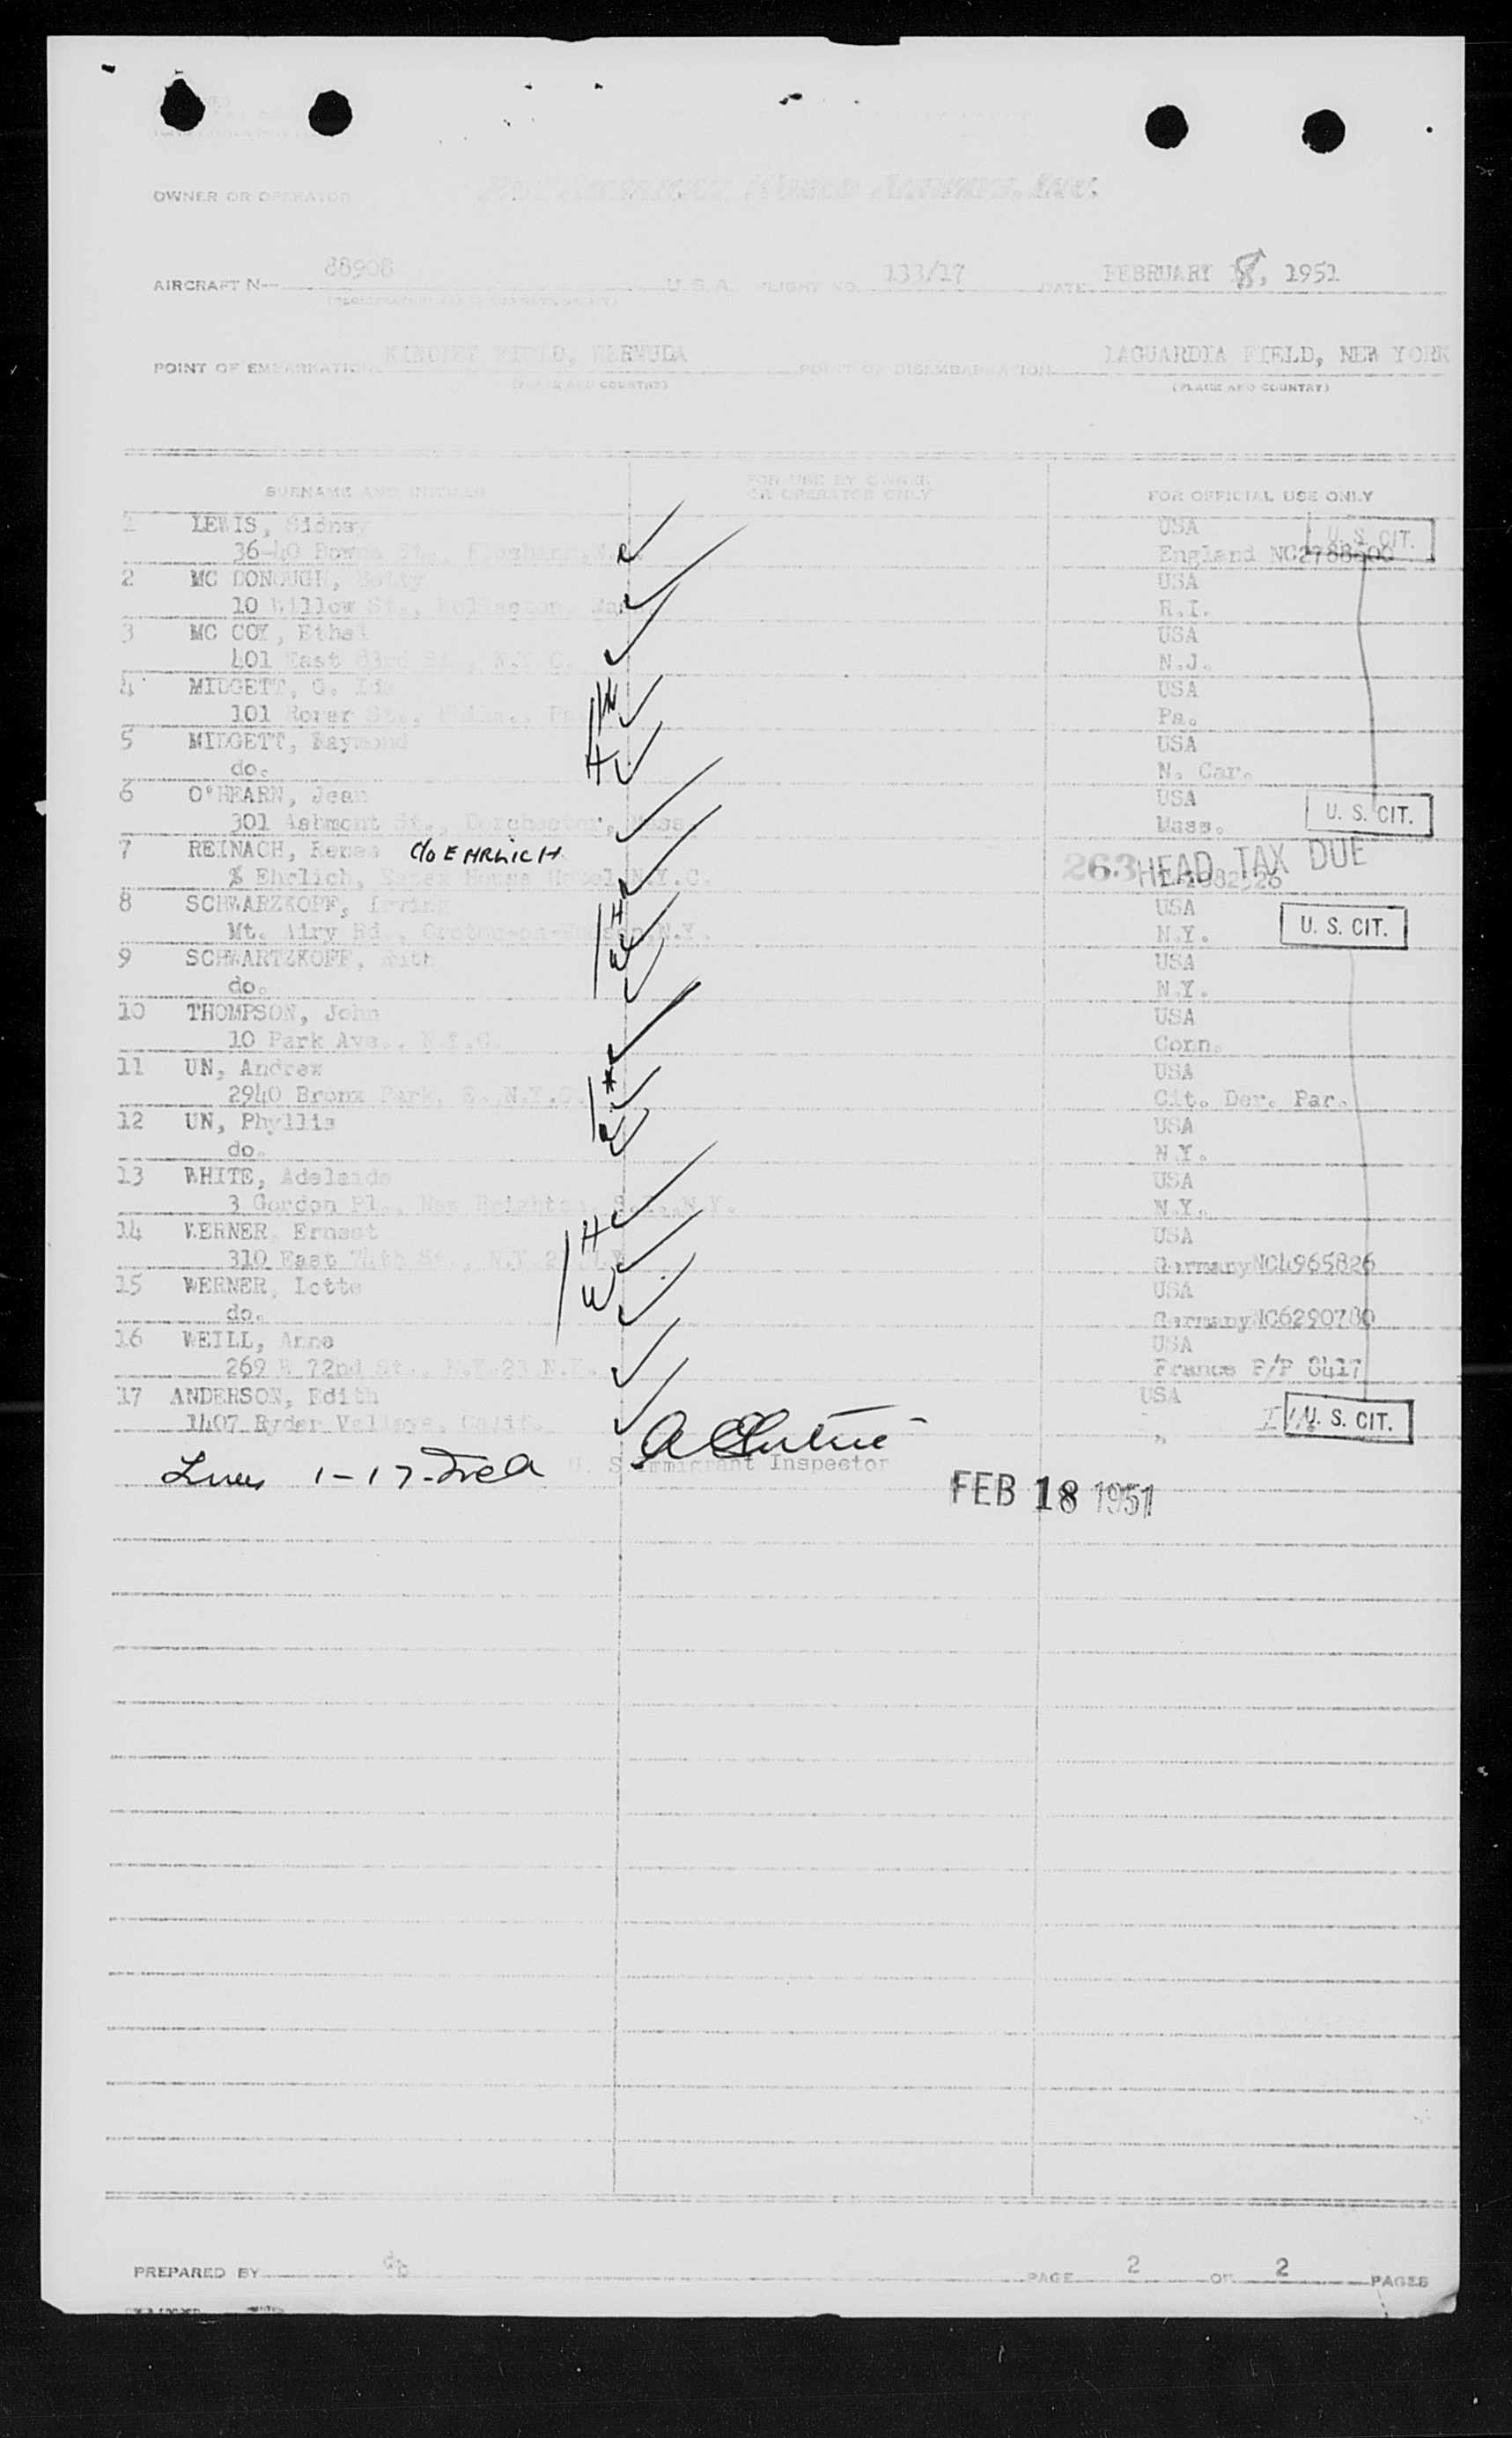 OWNER OR OPERATOR Pan American World Airways, Inc.
AIRCRAFT N— 88908 U. S. A. FLIGHT NO. 133/17 DATE FEBRUARY 18, 1951
POINT OF EMBARKATION KINDLEY FIELD, BERMUDA POINT OF DISEMBARKATION LAGUARDIA FIELD, NEW YORK
(PLACE AND COUNTRY) (PLACE AND COUNTRY)
SURNAME AND INITIALS FOR USE BY OWNER OR OPERATOR ONLY FOR OFFICIAL USE ONLY
1 LEWIS, Sidney USA U. S. CIT.
36-40 Bowne St., Flushing, N.Y. England NC2788600
2 MC DONOUGH, Betty USA
10 Willow St., Wollaston, Mass. R.I.
3 MC COY, Ethel USA
401 East 83rd St., N.Y.C. N.J.
4 MIDGETT, G. Ida W USA
101 Rorer St., Phila., Pa. Pa.
5 MIDGETT, Raymond USA
do. H N. Car.
6 O'HEARN, Jean USA
301 Ashmont St., Dorchester, Mass. Mass. U. S. CIT.
7 REINACH, Renee c/o EHRLICH 263 HEAD TAX DUE
% Ehrlich, Essex House Hotel N.Y.C.
8 SCHWARZKOPF, Irving H USA
Mt. Airy Rd., Croton-on-Hudson, N.Y. N.Y. U. S. CIT.
9 SCHWARTZKOPF, Edith W USA
do. N.Y.
10 THOMPSON, John USA
10 Park Ave., N.Y.C. Conn.
11 UN, Andrew USA
2940 Bronx Park, E. N.Y.C. Cit. Der. Par.
12 UN, Phyllis USA
do. N.Y.
13 WHITE, Adelaide USA
3 Gordon Pl., New Brighton, S.I., N.Y. N.Y.
14 WERNER, Ernest H USA
310 East 74th St., N.Y. 21 N.Y. Germany NC4965826
15 WERNER, Lotte W USA
do. Germany NC6290780
16 WEILL, Anne USA
269 W 72nd St., N.Y. 23 N.Y. France P/P 8417
17 ANDERSON, Edith USA
1407 Ryder Vallaye, Calif. U. S. CIT.
1-17 U. S. Immigrant Inspector
FEB 18 1951
PREPARED BY db PAGE 2 OF 2 PAGES